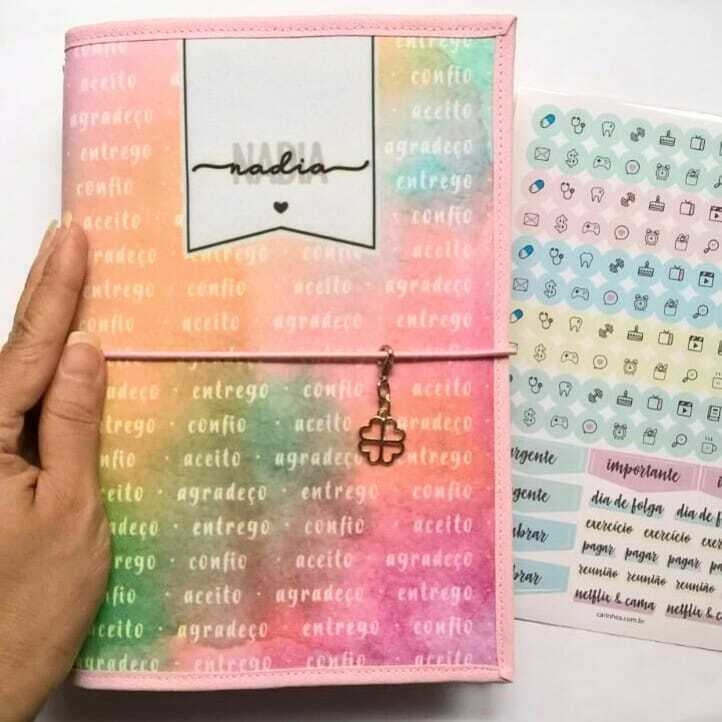 entrego
aceito confio
agradeço · aceito
entrego · agradeço
confio · entrego
NADIA
nadia
aceito · confio
agradeço · entrego · confio · aceito
entrego · confio · aceito · agradeço
confio · aceito · agradeço · entrego
adeço · entrego · confio · aceito
confio · aceito · agradeço
nfio · aceito · agradeço · entrego
ceito · agradeço · entrego · confio
adeço · entrego · confio · aceito
trego · confio · aceito · agradeço
fio · aceito · agradeço · entrego
aceito · agradeço · entrego · confio
agradeço · entrego · confio · aceito
urgente importante
dia de folga dia de folga
exercício exercício
pagar pagar pagar
reunião reunião reunião
netflix & cama netflix & cama
carinhos.com.br